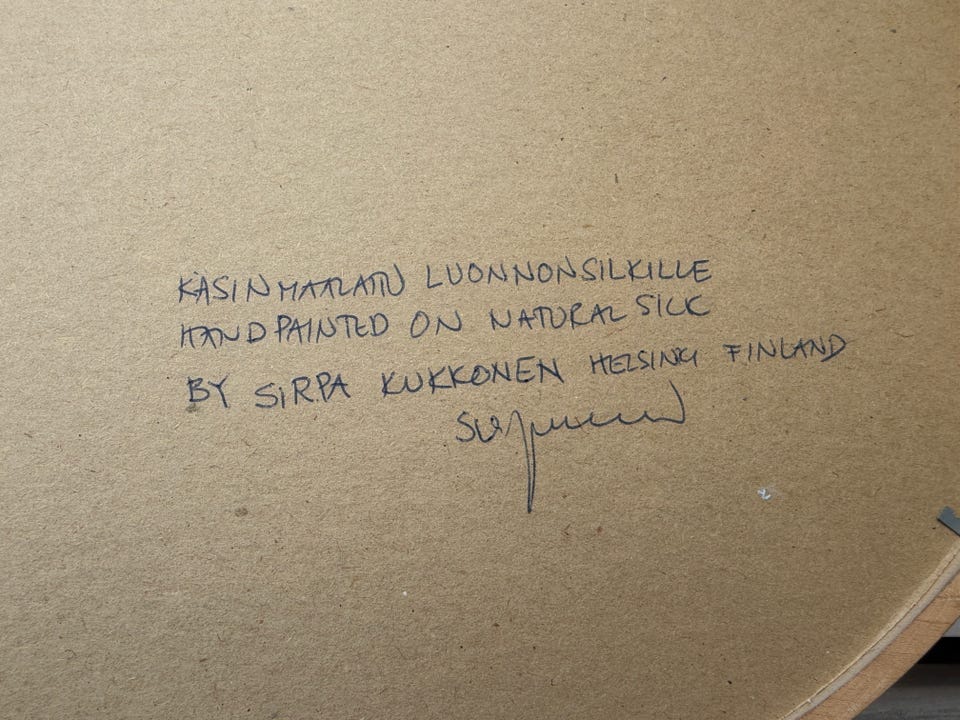 KÄSINMAALATTU LUONNONSILKILLE
HAND PAINTED ON NATURAL SILK
BY SIRPA KUKKONEN HELSINKI FINLAND